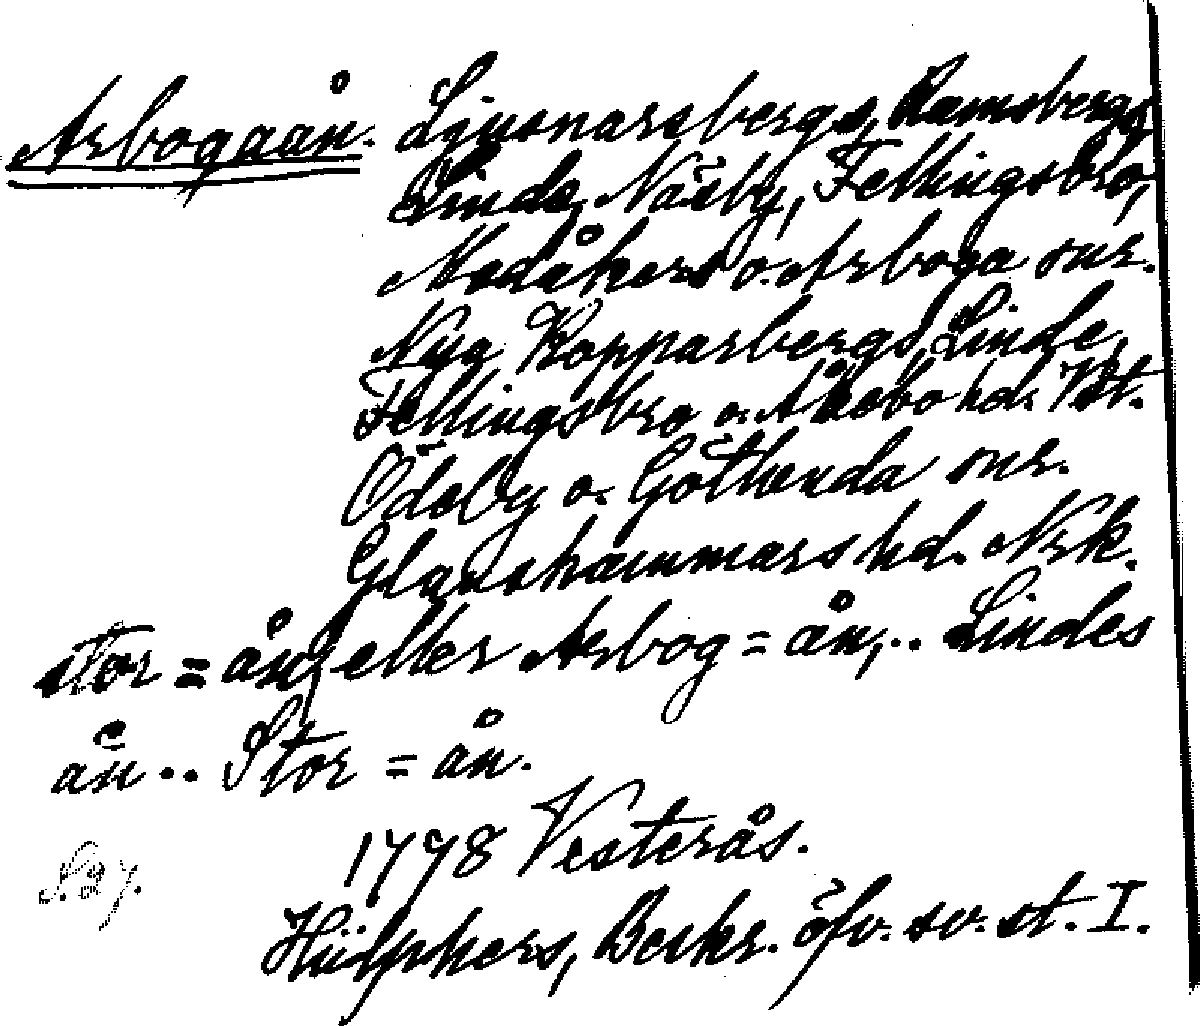 Arbogaån. Ljusnarsbergs, Ramsbergs,
Linde, Näsby, Fellingsbro,
Medåkers o. Arboga snr.
Nya Kopparbergs, Linde,
Fellingsbro o. Åkebo hd. Vstm.
Ödeby o. Götlunda snr.
Glanshammars hd. Nrk.
stor=ån, eller Arbog=ån, .. Lindes
ån .. Stor=ån.
1798 Vesterås.
S. 37.
Hülphers, Beskr. öfv. sv. st. I.